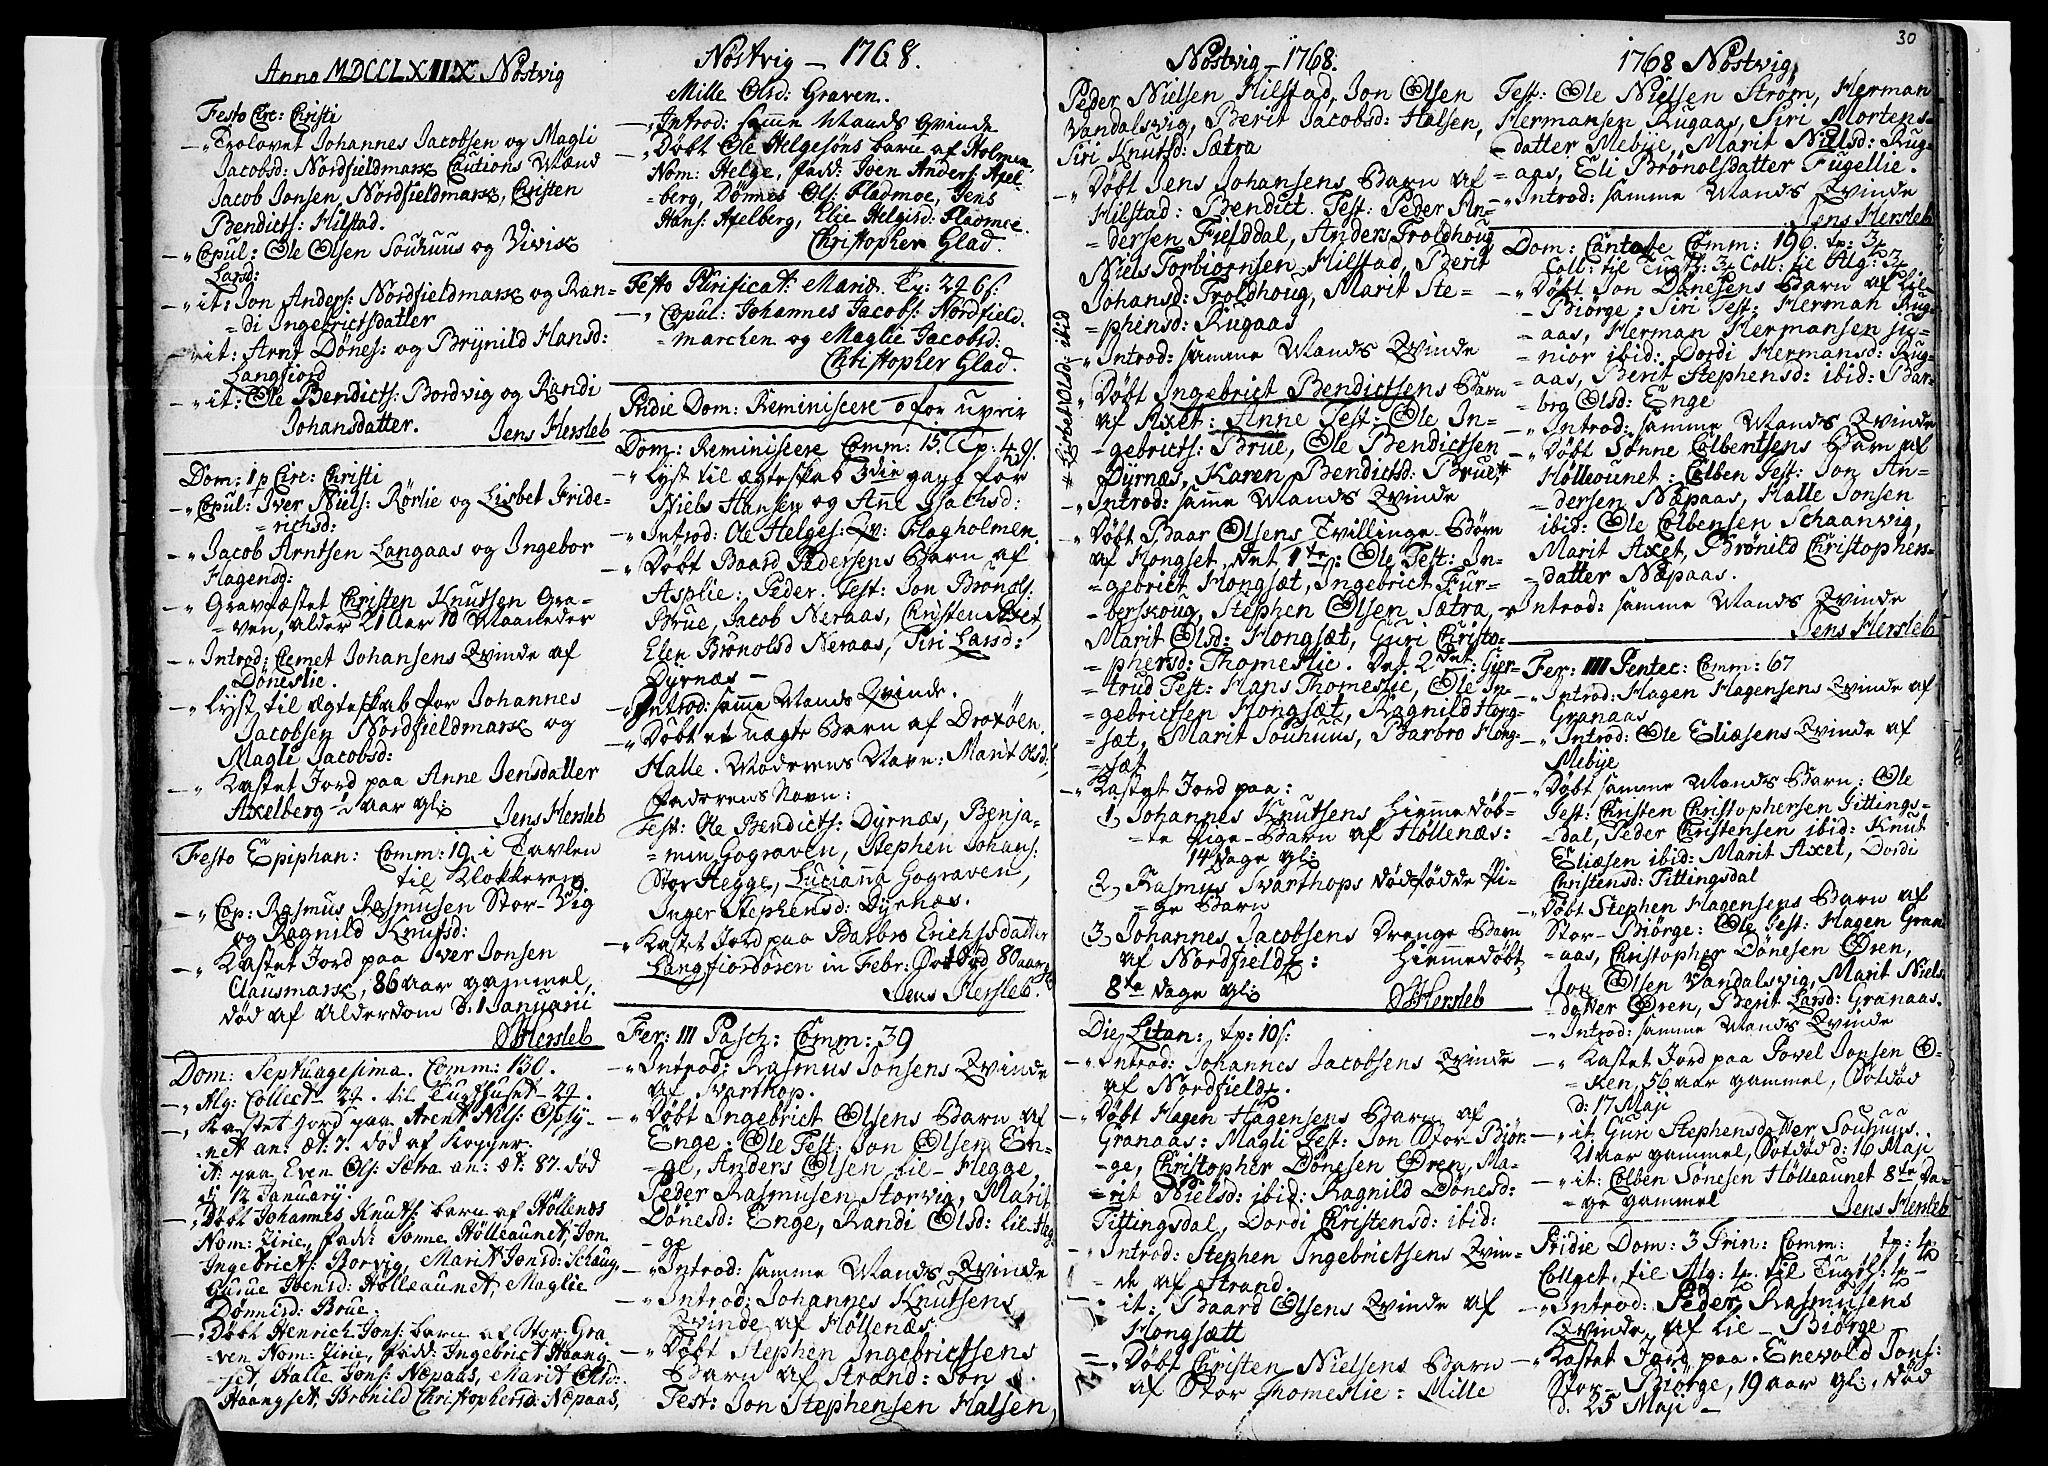 Anno MDCCLXIIX Nöstvig
Festo Circ: Christi
-„ Trolovet Johannes Jacobsen og Magli
Jacobsd: Nordfieldmark Cautions Mænd
Jacob Jonsen, Nordfieldmark, Christen
Bendicts: Hilstad.
-„ Copul: Ole Olsen Souhuus og Vivik
Larsd:
-„ it: Jon Anders: Nordfieldmark og Ran-
=di Ingebrictsdatter
-„ it: Arnt Dönes: og Brynild Hansd:
Langfiord
-„ it: Ole Bendicts: Bordvig og Randi
Johansdatter. Jens Hersleb
Dom: 1 p Circ: Christi
-„ Copul: Iver Niels: Rörlie og Lisbet Fride-
=richsd:
-„ Jacob Arntsen Langaas og Ingebor
Hagensd:
-„ Gravfæstet Christen Knutsen Gra-
=ven, alder 21 aar 10 Maaneder
-„ Introd: Clemet Johansens Qvinde af
Döneslie.
-„ Lyst til ægteskab for Johannes
Jacobsen Nordfieldmark og
Magli Jacobsd:
-„ Kastet Jord paa Anne Jensdatter
Axelberg ½ aar gl: Jens Hersleb
Festo Epiphan: Comm: 19 i Tavlen
til Klokkeren
-„ Cop: Rasmus Rasmusen Stor-Vig
og Ragnild Knutsd:
-„ Kastet Jord paa Iver Jonsen
Clausmark, 86 aar gammel,
död af Alderdom d: 1 Januarii
Hersleb
Dom: Septuagesima. Comm: 130.
-„ Alg: Collect 24. til Tugthuset 24.
-„ Kastet jord paa Arent Nils: Opsy-
net an: æt: 7. död af Kopper.
it: paa Even Ols: Sætra an: æt: 87. död
d: 12 January.
-„ Döbt Johannes Knuts: barn af Höllenæs
Nom: Zirie, fadd: Sönne Hölleaunet, Jon
Ingebrict: Borvig, Marit Jonsd: Schaug,
Gurue Joensd: Hölleaunet, Maglie
Dönnisd: Brue.
-„ Döbt Henrich Jons: barn af Stor-Gra
=ven Nom: Zirie, fadd: Ingebrict Haang-
set, Halle Jons: Næpaas, Marit Olsd:
Haangset, Brönild Christophersd: Næpaas,
Nöstvig - 1768.
Mille Olsd: Graven.
-„ Introd: samme Mands Qvinde
-„ Döbt Ole Helgesöns barn af Holmen.
Nom: Helge, fadd: Joen Anders: Axel-
=berg, Dönnes Ols: Fladmoe, Jens
Hans: Axelberg, Elie Helgisd: Fladmoe.
Christopher Glad.
Festo Purificat: Mariæ. Tp: 2 4 6 s:
-„ Copul: Johannes Jacobs: Nordfield.
marchen og Maglie Jacobsd:
Christopher Glad.
Pridie Dom: Reminiscere o for uveir
Dom: Reminiscere Comm: 15. Tp: 4 9 s.
-„ Lyst til ægteskab 3die gang for
Niels Hansen og Anne Isachsd:
-„ Introd: Ole Helges: Qv: Flagholmen
-„ Döbt Baard Pedersens Barn af
Asplie: Peder. Test: Jon Brönols:
Brue, Jacob Neraas, Christen Axet,
Elen Brönolsd Neraas, Siri Larsd:
Dyrnæs -
-„ Introd: samme Mands Qvinde.
-„ Döbt et uægte Barn af Droxöen.
Halle. Moderens Navn: Marit Olsd:
Faderens Navn:
Test: Ole Bendicts: Dyrnæs, Benja-
=min Gograven, Stephen Johans:
Stor Hegge, Luciana Gograven,
Inger Stephensd: Dyrnæs.
-„ Kastet Jord paa Barbro Erichsdatter
Langfiordören in Febr: Sotdöd 80 aar gl:
Jens Hersleb.
Fer: III Pasch: Comm: 39
-„ Introd: Rasmus Jonsens Qvinde
af Svarthop.
-„ Döbt Ingebrict Olsens Barn af
Enge: Ole Test: Jon Olsen En-
=ge, Anders Olsen Lie-Hegge,
Peder Rasmusen Storvig, Marit
Dönesd: Enge, Randi Olsd: Lie-Heg-
=ge
-„ Introd: samme Mands Qvinde
-„ Introd: Johannes Knutsens
Qvinde af Höllenæs.
-„ Döbt Stephen Ingebrictsens
Barn af Strand: Jon
Test: Jon Stephensen Halsen,
Nöstvig - 1768.
Peder Nielsen Hilstad, Jon Olsen
Vandalsvig, Berit Jacobsd: Halsen,
Siri Knutsd: Sætra
-„ Döbt Jens Johansens Barn af
Hilstad: Bendict. Test: Peder An-
=dersen Fielddal, Anders Troldhoug
Niels Torbiörnsen Hilstad, Berit
Johansd: Troldhoug, Marit Ste-
=phensd: Rugaas
-„ Introd: samme Mands Qvinde
-„ Döbt Ingebrict Bendictsens Barn
af Axet: Anne Test: Ole In-
=gebricts: Brue, Ole Bendictsen
Dyrnæs, Karen Bendictsd: Brue,*
* Lisbet Olsd: ibid
-„ Introd: samme Mands Qvinde
-„ Döbt Baar Olsens Tvillinge-Börn
af Hongset, det 1te: Ole Test: In-
=gebrict Hongsæt, Ingebrict Fur-
=berskoug, Stephen Olsen Sætra,
Marit Olsd: Hongsæt, Guri Christo-
=phersd: Thomeslie. Det 2det: Gier-
=trud Test: Hans Thomeslie, Ole In-
=gebrictsen Hongsæt, Ragnild Hong-
=sæt, Marit Souhuus, Barbro Hong-
=sæt
-„ Kastet Jord paa:
1) Johannes Knutsens Hiemmedöb-
=te Pige-Barn af Höllenæs:
14 Dage gl:
2) Rasmus Svarthops dödfödde Pi-
=ge Barn
3) Johannes Jacobsens Drenge Barn
af Nordfieldm: Hiemmedöbt,
8te Dage gl: Hersleb
Die Litan: tp: 10 s:
-„ Introd: Johannes Jacobsens Qvinde
af Nordfieldm.
-„ Döbt Hagen Hagensens Barn af
Granaas: Magli Test: Jon Stor-Biör-
=ge, Christopher Dönesen Ören, Ma-
=rit Nielsd: ibid: Ragnild Dönesd:
Tittingsdal, Dordi Christensd: ibid:
-„ Introd: Stephen Ingebrictsens Qvin-
=de af Strand.
-„ it: Baard Olsens Qvinde af
Hongsætt
-„ Döbt Christen Nielsens Barn
af Stor Thomeslie = Mille
30
1768 Nöstvig,
Test: Ole Nielsen Ström, Herman
Hermansen Rugaas, Siri Mortens-
=datter Mebÿe, Marit Nielsd: Rug-
=aas, Eli Brönolsdatter Fugellie.
-„ Introd: samme Mands Qvinde
Jens Hersleb
Dom: Cantate Comm: 196. tp: 3
Coll: til Tugth: 3 Coll: til Alg: 3
-„ Döbt Jon Dönesens Barn af Lil-
-Biörge: Siri Test: Herman Rug-
=aas, Herman Hermansen ju-
=nior ibid: Dordi Hermansd: Rug-
=aas, Berit Stephensd: ibid: Bar-
=bro Olsd: Enge
-„ Introd: samme Mands Qvinde
-„ Döbt Sönne Colbentsens Barn af
Hölleounet: Colben Test: Jon An-
=dersen Næpaas, Halle Jonsen
ibid: Ole Colbensen Schaanvig,
Marit Axet, Brönild Christophers-
=datter Næpaas.
-„ Introd: samme Mands Qvinde
Jens Hersleb
Fer: III Pentec: Comm: 67
-„ Introd: Hagen Hagensens Qvinde af
Granaas
-„ Introd: Ole Eliæsens Qvinde af
Mebÿe
-„ Döbt samme Mands Barn: Ole
Test: Christen Christophersen Tittings-
=dal, Peder Christensen ibid: Knut
Eliæsen ibid: Marit Axet, Dordi
Christensd: Tittingsdal
-„ Döbt Stephen Hagensens Barn af
Stor-Biörge: Ole Test: Hagen Gran-
=aas, Christopher Dönesen Ören,
Jon Olsen Vandalsvig, Marit Niels-
Datter Ören, Berit Larsd: Granaas.
-„ Introd: samme Mands Qvinde
-„ Kastet Jord paa Povel Jonsen O-
=ren, 56 aar gammel, Sotdöd
d: 17 Maji
-„ it Guri Stephensdatter Souhuus.
21 aar gammel, Sotdöd d: 16 Maji
-„ it: Colben Sönesen Hölleaunet 8te Da-
=ge gammel Jens Hersleb
Pridie Dom: 3 Trin: Comm: tp: 1
Collget. til Alg: 1. til Tugth: 1
-„ Introd: Peder Rasmusens
Qvinde af Lie-Biörge
-„ Kastet Jord paa Enevold Jons:
Stor-Biörge, 19 aar gl:, död
d. 25 Maji -